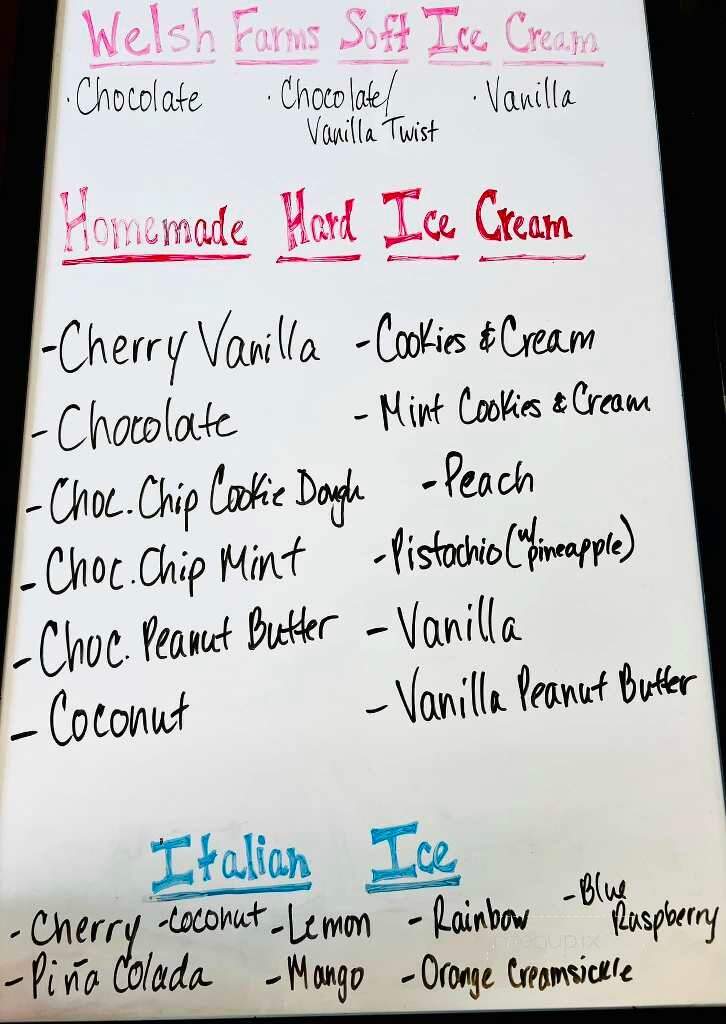 Welsh Farms Soft Ice Cream
· Chocolate · Chocolate/ · Vanilla
Vanilla Twist
Homemade Hard Ice Cream
- Cherry Vanilla - Cookies & Cream
- Chocolate - Mint Cookies & Cream
- Choc. Chip Cookie Dough - Peach
- Choc. Chip Mint - Pistachio (w/ pineapple)
- Choc. Peanut Butter - Vanilla
- Coconut - Vanilla Peanut Butter
Italian Ice
- Cherry - Coconut - Lemon - Rainbow - Blue Raspberry
- Piña Colada - Mango - Orange Creamsickle